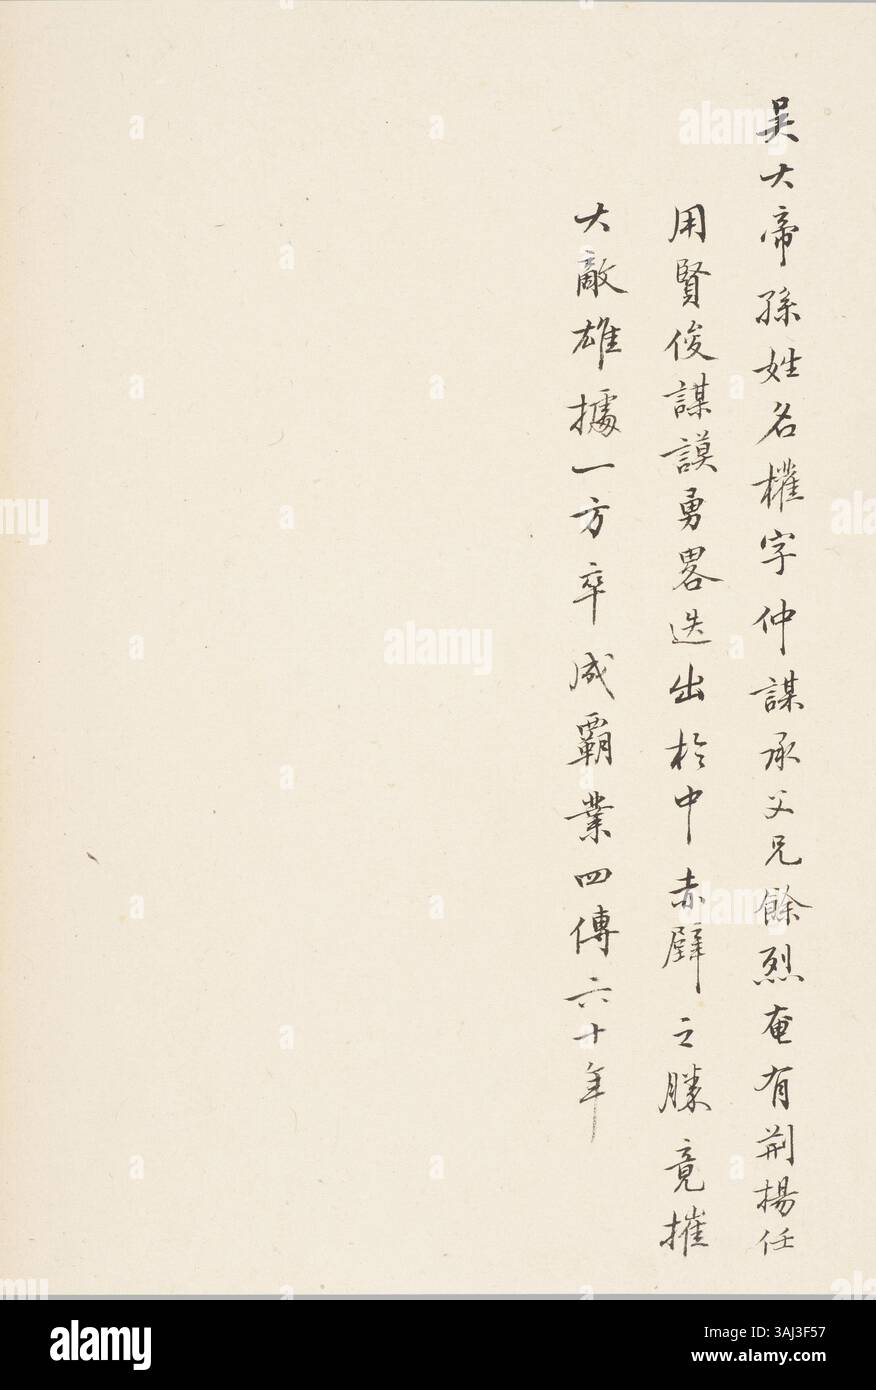 吳大帝孫姓名權字仲謀承父兄餘烈奄有荊揚任
用賢俊謀謨勇畧迭出於中赤壁之勝竟摧
大敵雄據一方卒成霸業四傳六十年
alamy
Image ID: 2AJ3F57
www.alamy.com